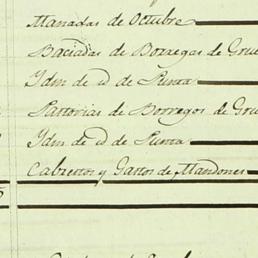 Manadas de Octubre
Baciadas de Borregas de Grue
Idm. de id de Punta
Pastorias de Borregos de Grue
Idm. de id de Punta
Cabrestos y Gastos de Mandones